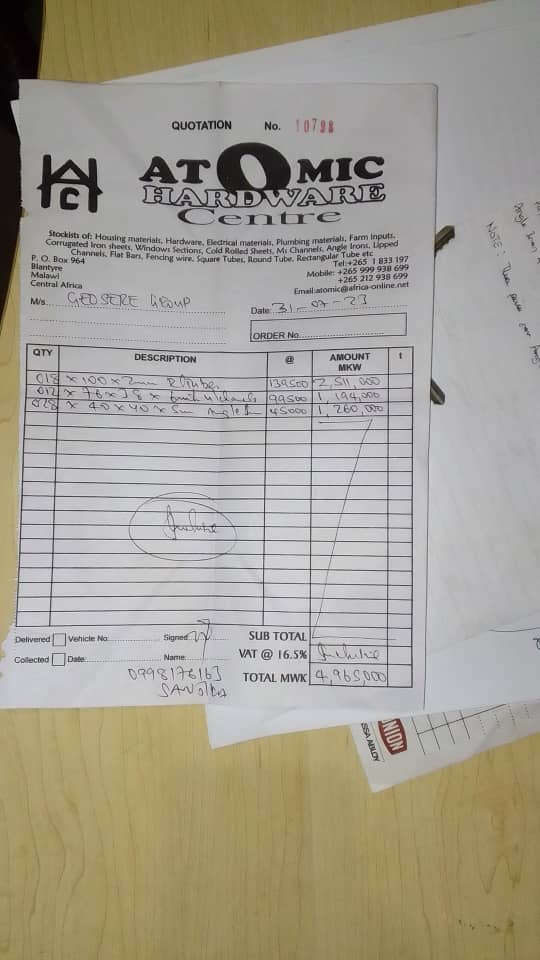 QUOTATION No. 10798
HCW
ATOMIC
HARDWARE
Centre
Stockists of: Housing materials, Hardware, Electrical materials, Plumbing materials, Farm Inputs,
Corrugated Iron sheets, Windows Sections, Cold Rolled Sheets, Ms Channels, Angle Irons, Lipped
Channels, Flat Bars, Fencing wire, Square Tubes, Round Tube, Rectangular Tube etc
P. O. Box 964
Blantyre
Malawi
Central Africa
Tel:+265 1 833 197
Mobile: +265 999 938 699
+265 212 938 699
Email:atomic@africa-online.net
M/s GEOSERE GROUP
Date: 31-07-23
ORDER No.
QTY DESCRIPTION @ AMOUNT MKW t
018 x 100 x 2mm 139500 2,511,000
012 x 76 x 38 x 99500 1,194,000
028 x 40 x 40 x 5mm Angle 45000 1,260,000
Inclusive
Delivered Vehicle No: Signed:
Collected Date: Name:
0998176163
SUB TOTAL
VAT @ 16.5% Inclusive
TOTAL MWK 4,965,000
NOTE:
UNION
SSA ABLOY